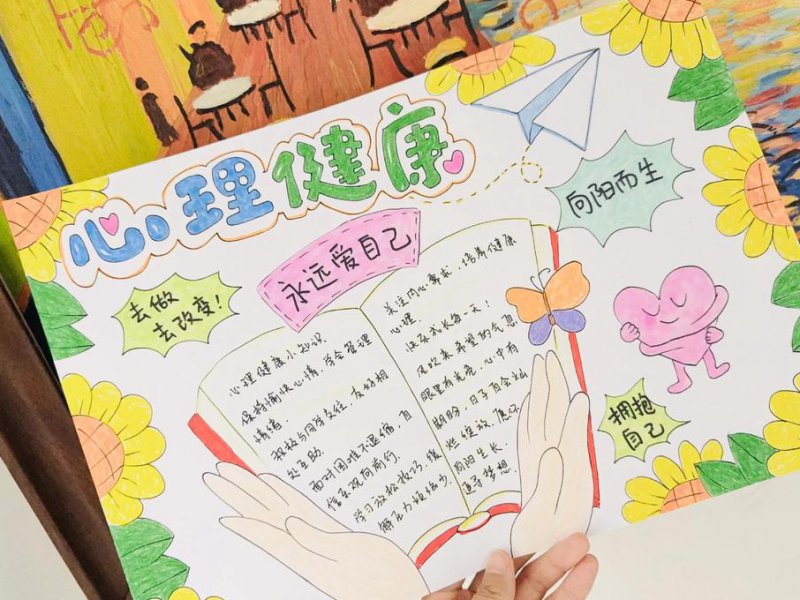 心理健康
永远爱自己
向阳而生
去做
去改变!
心理健康小知识
保持愉快心情,学会管理
情绪
积极与同学交往,友好相
处互助
面对困难不退缩,自
信乐观向前行.
学习放松技巧,缓
解压力烦恼少.
关注内心需求,培养健康
心理.
快乐成长每一天!
风吹来希望的气息
眼里有光亮,心中有
期盼,日子自会灿
烂绽放,愿你
向阳生长.
追寻梦想.
拥抱
自己